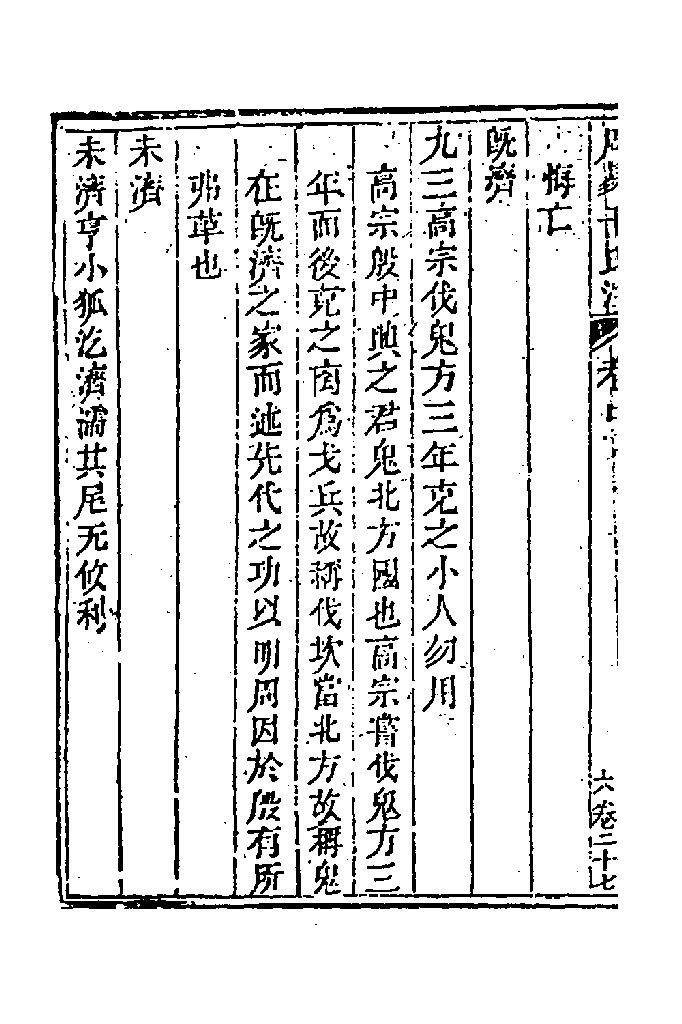 周易干氏注 卷中 六 卷二十七
悔亡
既濟
九三高宗伐鬼方三年克之小人勿用
高宗殷中興之君鬼北方國也高宗嘗伐鬼方三
年而後克之离爲戈兵故稱伐坎當北方故稱鬼
在既濟之家而述先代之功以明周因於殷有所
弗革也
未濟
未濟亨小狐汔濟濡其尾无攸利